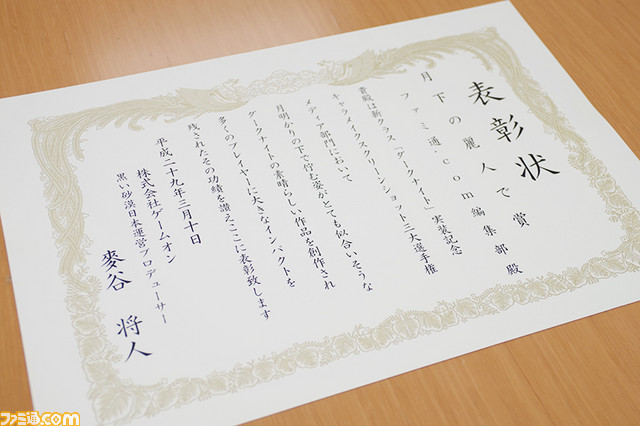 表彰状
月下の麗人で賞
ファミ通.com編集部殿
貴殿は新クラス「ダークナイト」実装記念
キャラメイクスクリーンショット三大選手権
メディア部門において
月明かりの下で佇む姿がとても似合いそうな
ダークナイトの素晴らしい作品を創作され
多くのプレイヤーに大きなインパクトを
残されたその功績を讃えここに表彰致します
平成二十九年三月十日
株式会社ゲームオン
黒い砂漠日本運営プロデューサー
麥谷 将人
ファミ通.com